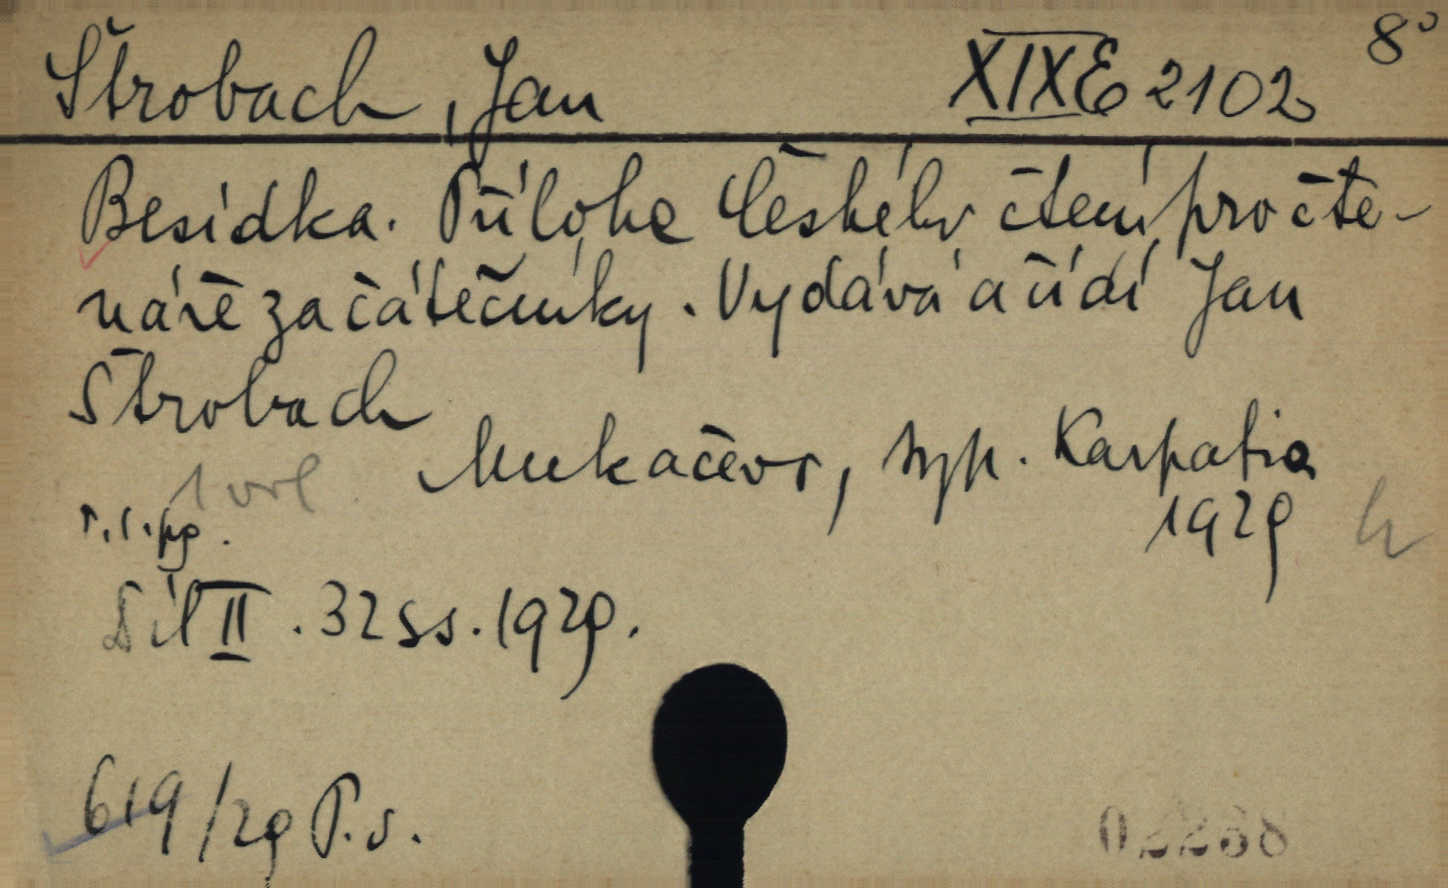 Štrobach, Jan XIX E 2102 8°
Besídka. Příloha Českého čtení pro čte-
náře začátečníky. Vydává a řídí Jan
Štrobach
Mukačevo, typ. Karpatia
1 vol
1929
Díl II. 32 ss. 1929.
619/29 P. s.
02268